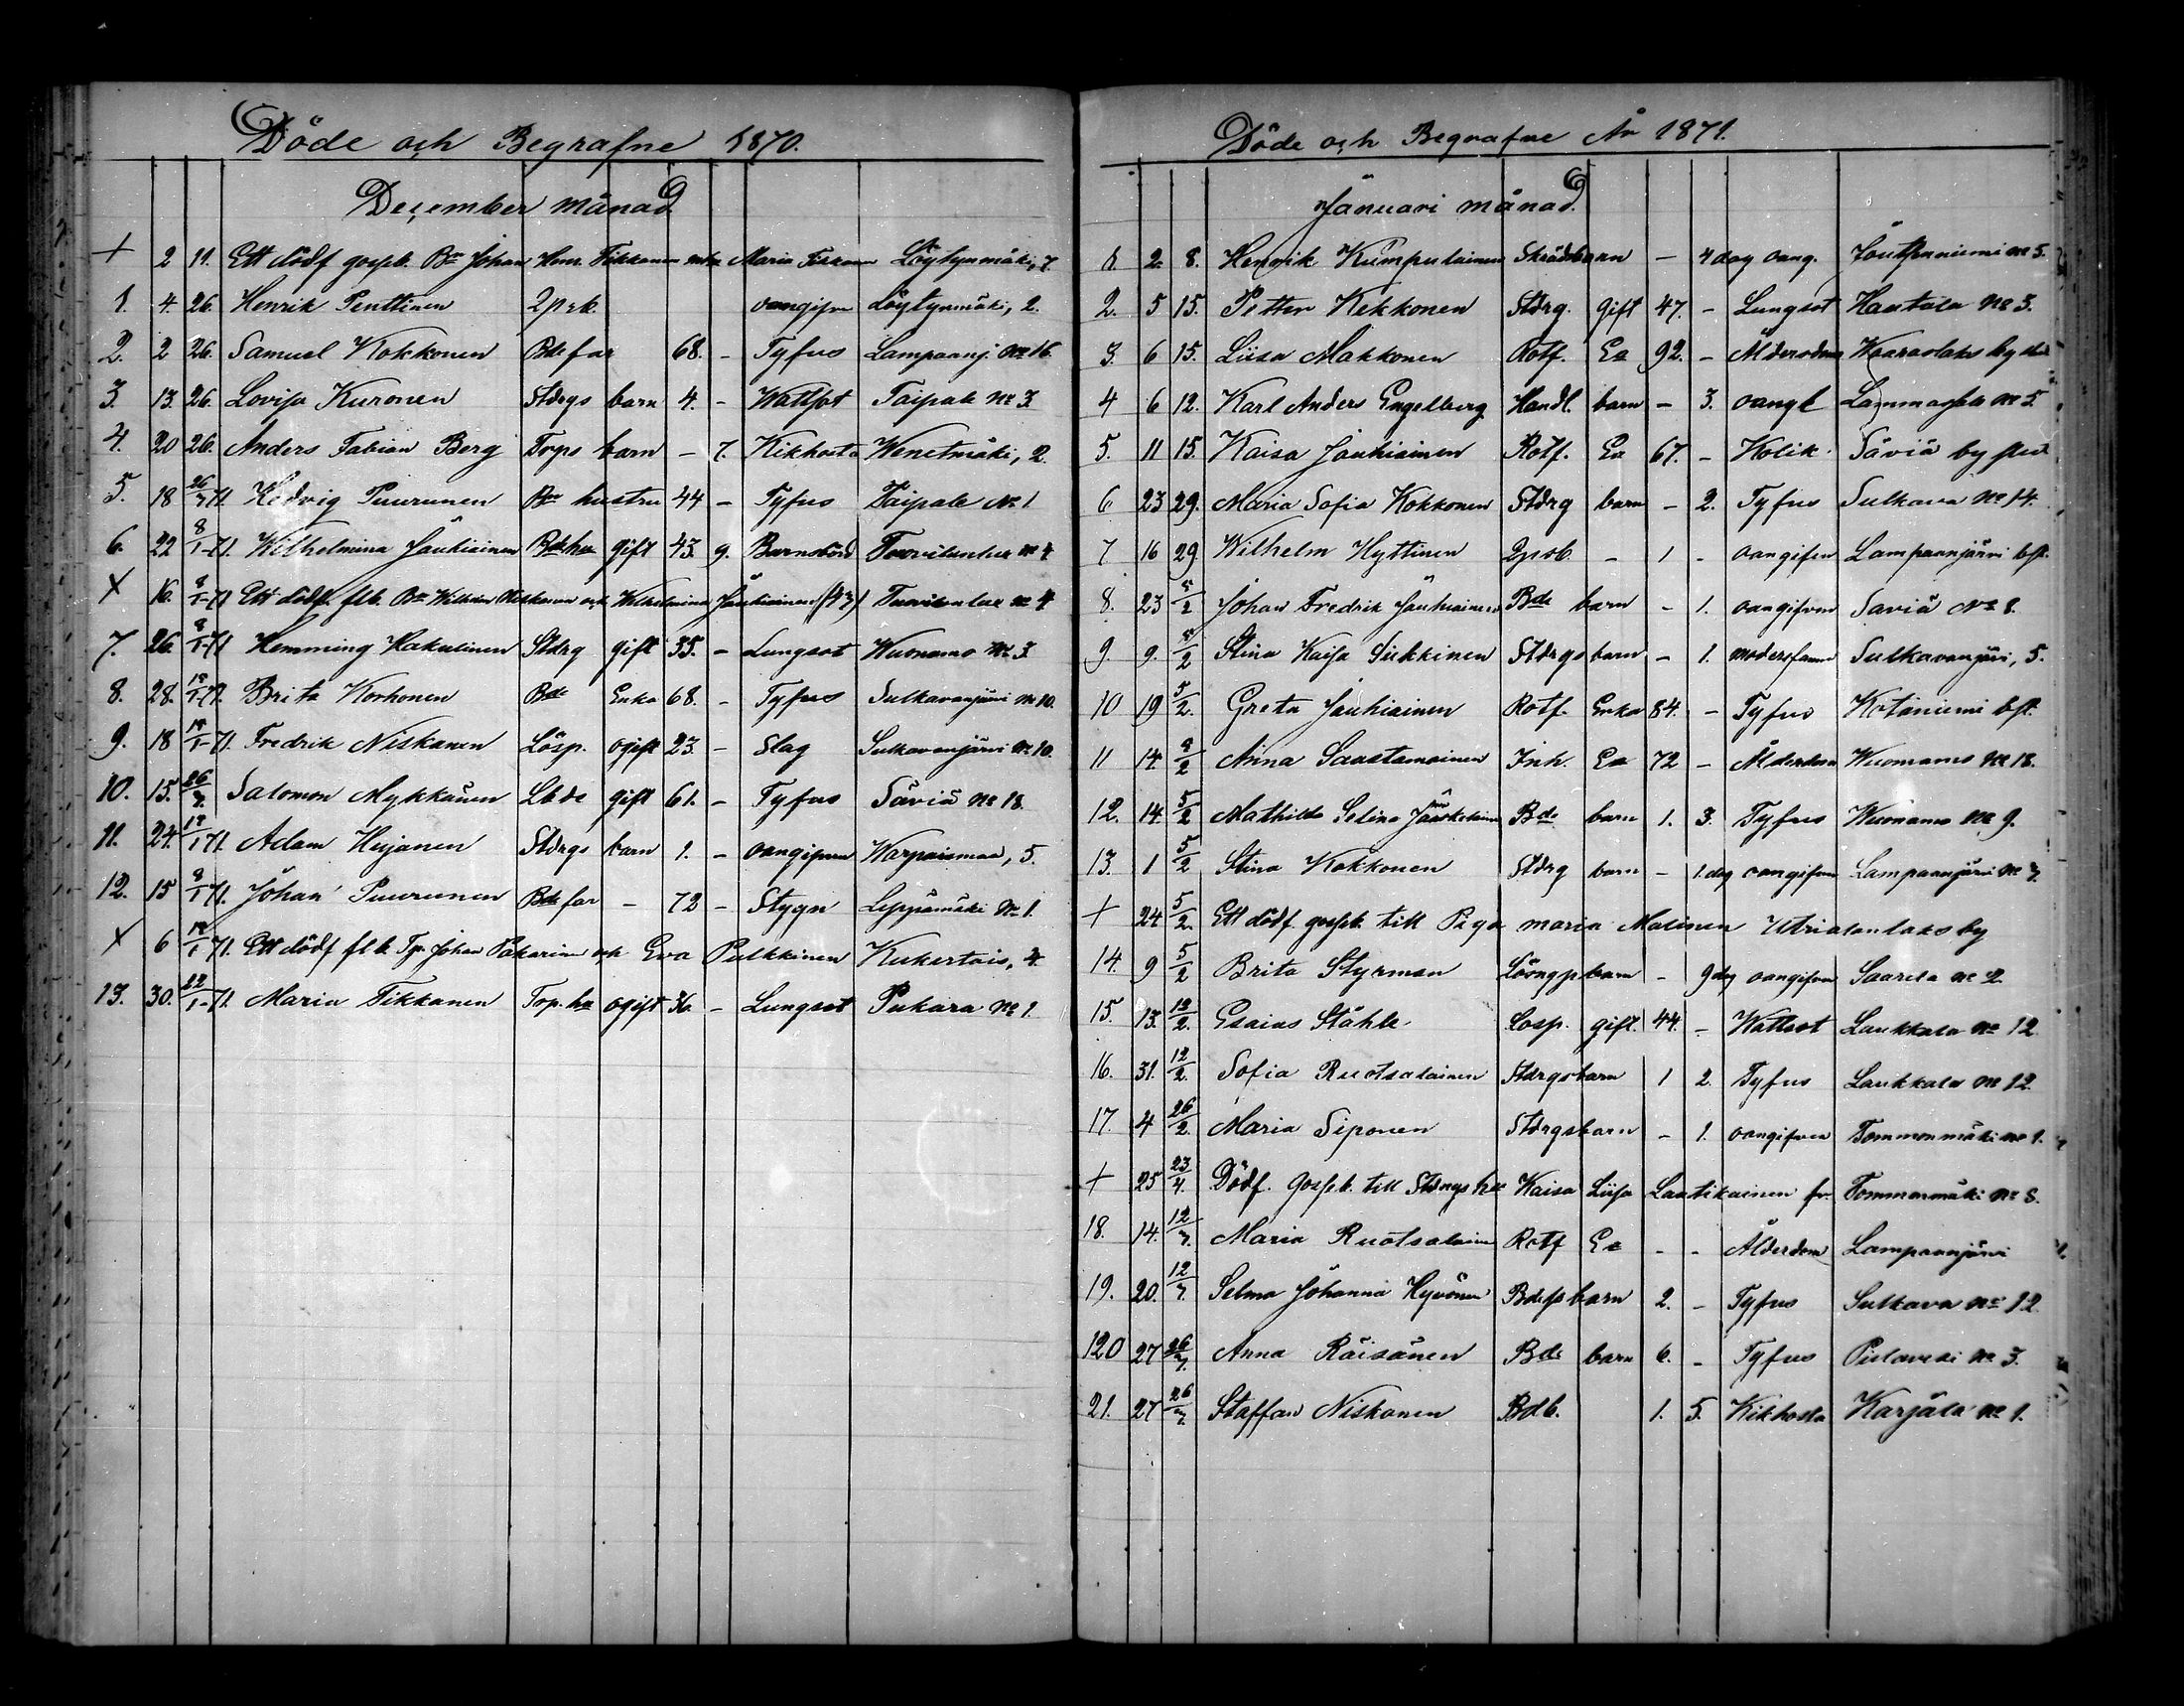 Döde och Begrafne 1870.
December månad
+ 2 11. Ett dödf gosseb. Bn Johan Henr. Tikkanen Maria Tikkanen Löytynmäki, 7.
1. 4. 26. Henrik Penttinen oangifvn Löytynmäki, 2.
2. 2 26. Samuel Kokkonen Bdefar 68. - Tyfus Lampaanj. No 16.
3. 13. 26. Lovisa Kuronen Stdrgs barn 4. - Wattsot Taipale No 3.
4. 20 26. Anders Fabian Berg Torps barn - 7. Kikhosta Wenetmäki, 2.
5. 18 26/3 71. Hedvig Puurunen Bn hustru 44 - Tyfus Taipale No 1
6. 22 8/1-71. Wilhelmina Jauhiainen Bdehu gift 43. 9. Barnsbörd No 4
X 16. 8/1-71 Ett dödf. flb. Bn Wilhelm och Wilhelmina Jauhiainen (43) No 4
7. 26. 8/1-71 Hemming Hakulinen Stdrg gift 35. - Lungsot Wuonamo No 3.
8. 28. Brita Korhonen Bde Enka 68. - Tyfus Sulkavanjärvi No 10.
9. 18 Fredrik Niskanen Lösp. ogift 23. - Slag Sulkavanjärvi No 10.
10. 15. 26/3. Salomon Mykkänen Lbde gift 61. - Tyfus Säviä No 18.
11. 24. Adam Heijanen Stdrgs barn 1. - oangifven Warpaismaa, 5.
12. 15 8/1 71. Johan Puurunen Bdefar - 72 - Stygn Leppämäki No 1.
X 6 Ett dödf flb Tp. Johan Pakarinen och Eva Pulkkinen 4.
13. 30. 22/1-71. Maria Tikkanen Top. ogift 36. - Lungsot Pukara No 1.
Döde och Begrafne År 1871.
Januari månad.
1. 2. 8. Henrik Kumpulainen Skräddbarn - 4 dag oang. No 5.
2. 5 15. Petter Kekkonen Stdrg. gift 47. - Lungsot Hautala No 3.
3. 6 15. Liisa Makkonen Rotf. Ea 92. - Ålderdom Kaaraslaks by
4 6 12. Karl Anders Engelberg Handl. barn - 3. oangf Lammassalo No 5.
5. 11 15. Kaisa Jauhiainen Rotf. Ea 67. - Kolik Säviä by
6 23 29. Maria Sofia Kokkonen Stdrg barn - 2. Tyfus Sulkava No 14.
7. 16 29 Wilhelm Hyttinen - 1 - oangifven Lampaanjärvi
8. 23 5/2 Johan Fredrik Jauhiainen Bde barn - 1. oangifven Säviä No 8.
9. 9. 5/2 Stina Kaisa Sikkinen Stdrgs barn - 1. Sulkavanjärvi, 5.
10 19 5/2. Greta Jauhiainen Rotf. Enka 84. - Tyfus Kotaniemi
11 14. Anna Saastamoinen Inh. Ea 72 - Ålderdom Wuonamo No 18.
12. 14. 5/2 Mathilda Selina Bde barn 1. 3. Tyfus Wuonamo No 9.
13. 1 5/2 Stina Kokkonen Stdrg barn - 1. dag oangifven Lampaanjärvi No 7.
+ 24 5/2. Ett dödf. gosseb. till Piga Maria Malinen Utrianlaks by
14. 9 5/2 Brita Styrman barn - 9 dag oangifven Saarela No 2.
15. 13. 12/2. Esaias Ståhle Losp. gift. 44. - Wattsot Laukkala No 12
16. 31. 12/2. Sofia Ruotsalainen Stdrgsbarn 1 2. Tyfus Laukkala No 12.
17. 4 26/2. Maria Siponen Stdrgsbarn - 1. oangifven Tommonmäki No 1.
+ 25 23/4. Dödf. gosseb. till Stdrgs hu Kaisa Liisa Lautikainen fr. Tommonmäki No 8.
18. 14. 12/3. Maria Ruotsalainen Rotf Ea - - Ålderdom Lampaanjärvi
19. 20. 12/3. Selma Johanna Hyvönen barn 2. - Tyfus Sulkava No 12
120 27 26/3. Anna Räisänen Bde barn 6. - Tyfus Pielavesi No 3.
21. 27 26/3. Staffan Niskanen Bdb. 1. 5. Kikhosta Karjala No 1.